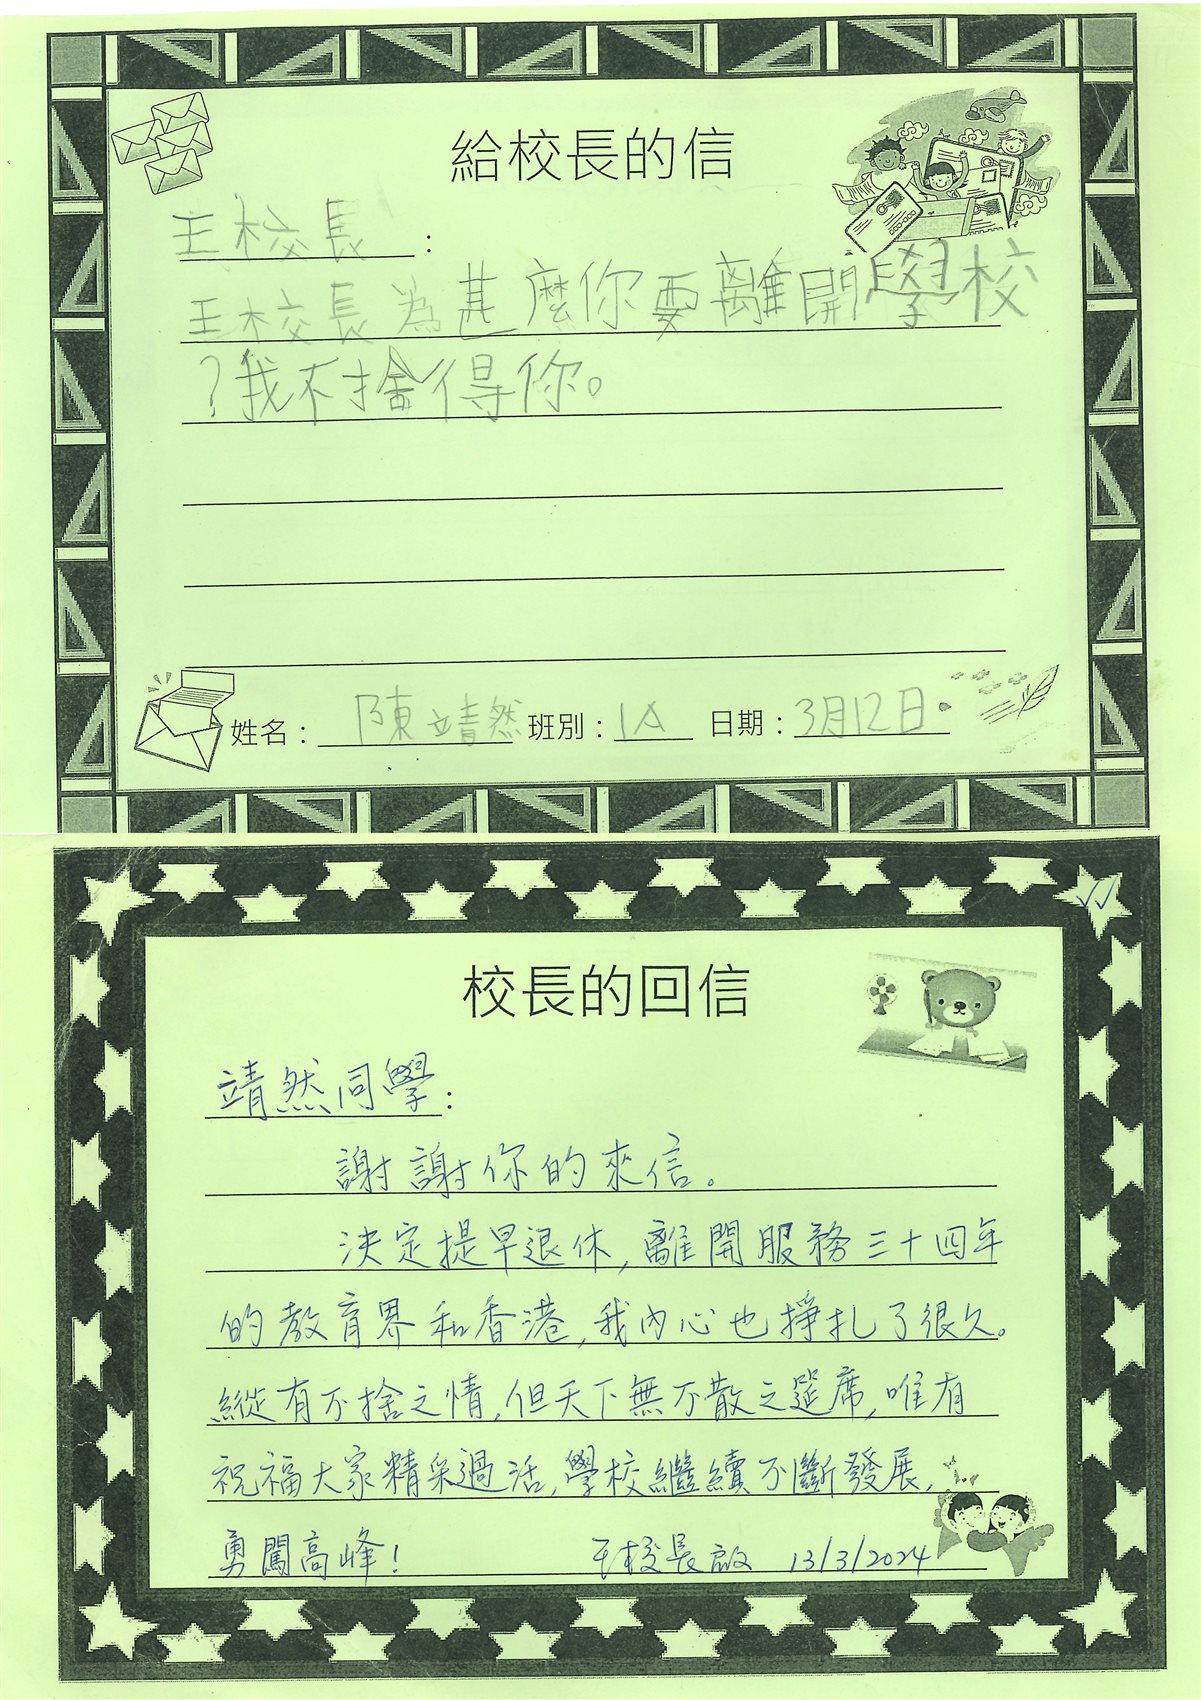 給校長的信
王校長：
王校長為甚麼你要離開學校
？我不捨得你。
姓名：陳靖然 班別：1A 日期：3月12日
校長的回信
靖然同學：
謝謝你的來信。
決定提早退休，離開服務三十四年
的教育界和香港，我內心也掙扎了很久。
縱有不捨之情，但天下無不散之筵席，唯有
祝福大家精采過活，學校繼續不斷發展，
勇闖高峰！ 王校長啟 13/3/2024